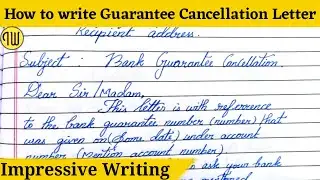 How to write Guarantee Cancellation Letter
Recipient address.
Subject : Bank Guarantee Cancellation.
Dear Sir/Madam,
This letter is with reference
to the bank guarantee number (number) that
was given on (from date) under account
number (Mention account number).
Impressive Writing
ask your bank
mentioned